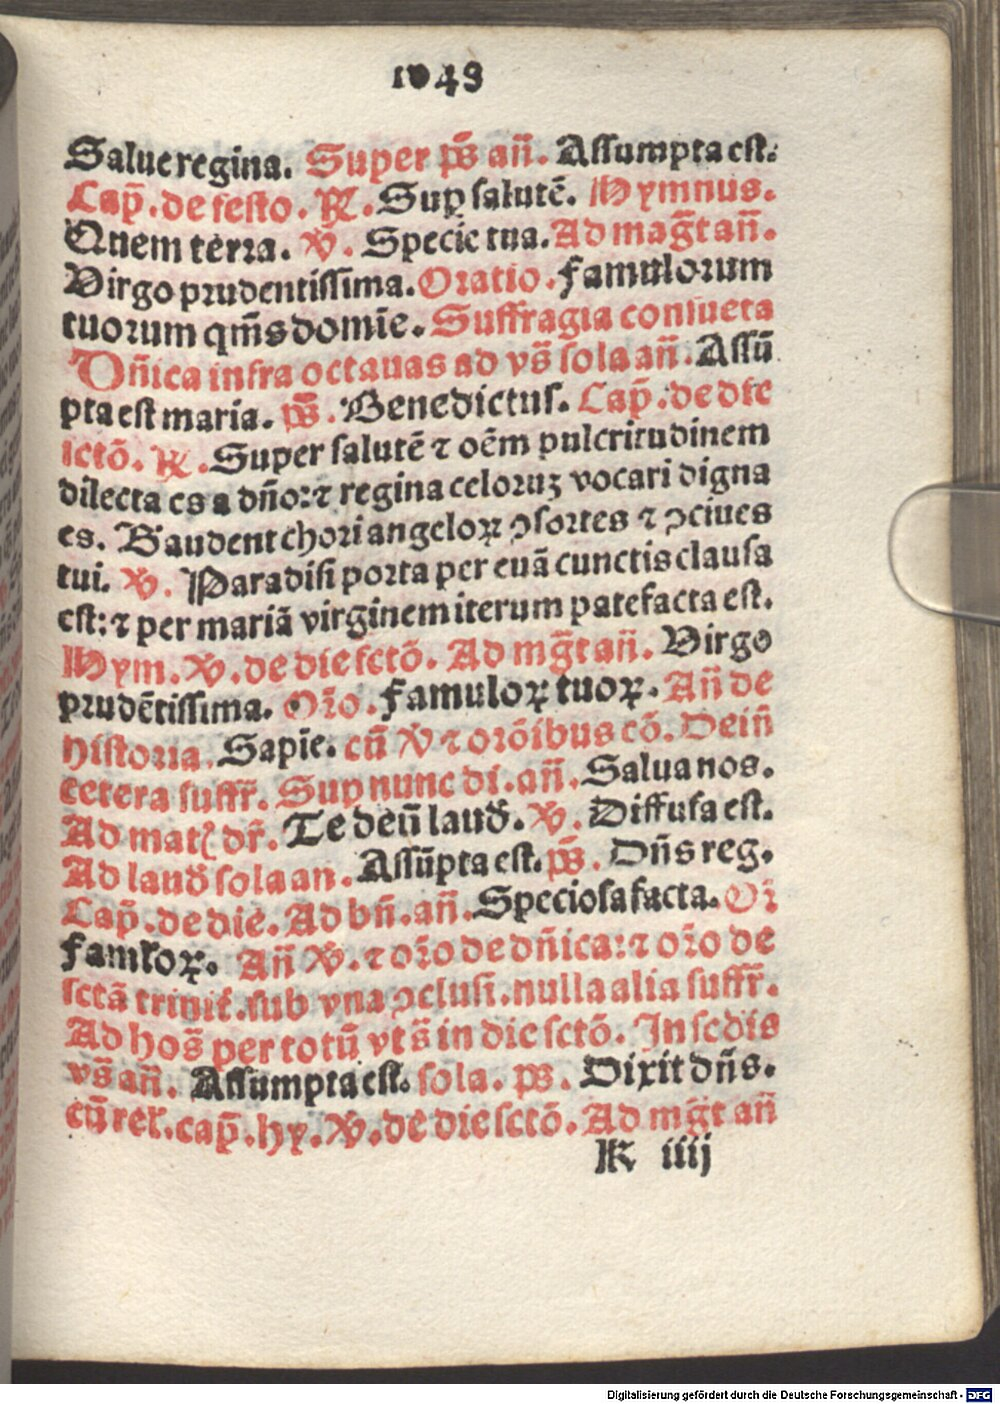 1043
Salue regina. Super p̄s añ. Assumpta est.
Cap̄. de festo. ℞. Sup salutē. Hymnus.
Quem terra. ℣. Specie tua. Ad mag̃t añ.
Virgo prudentissima. Oratio. Famulorum
tuorum qm̄s domīe. Suffragia consueta
Dñica infra octauas ad vs̄ sola añ. Assū
pta est maria. p̄s. Benedictus. Cap̄. de die
sctō. ℞. Super salutē ⁊ oēm pulcritudinem
dilecta es a dño: ⁊ regina celoruꝫ vocari digna
es. Gaudent chori angeloꝝ ↄsortes ⁊ ↄciues
tui. ℣. Paradisi porta per euā cunctis clausa
est: ⁊ per mariā virginem iterum patefacta est.
Hym. ℣. de die sctō. Ad mg̃t añ. Virgo
prudētissima. Orō. Famuloꝝ tuoꝝ. Añ de
historia. Sapiē. cū ℣ ⁊ orōibus cō. Deiñ
cetera suffr̄. Sup nunc di. añ. Salua nos.
Ad mat̄ dr̄. Te deū laud. ℣. Diffusa est.
Ad laud sola an. Assūpta est. p̄s. Dñs reg.
Cap̄. de die. Ad bñ. añ. Speciosa facta. Or̄
Famloꝝ. Añ ℣. ⁊ orō de dñica: ⁊ orō de
sctā trinit. sub vna ↄclusi. nulla alia suffr̄.
Ad hos̄ per totū vts̄ in die sctō. In scdis
vs̄ añ. Assumpta est. sola. ps. Dixit dñs.
cū rel. cap̄. hy. ℣. de die sctō. Ad mg̃t añ
K iiij
Digitalisierung gefördert durch die Deutsche Forschungsgemeinschaft - DFG